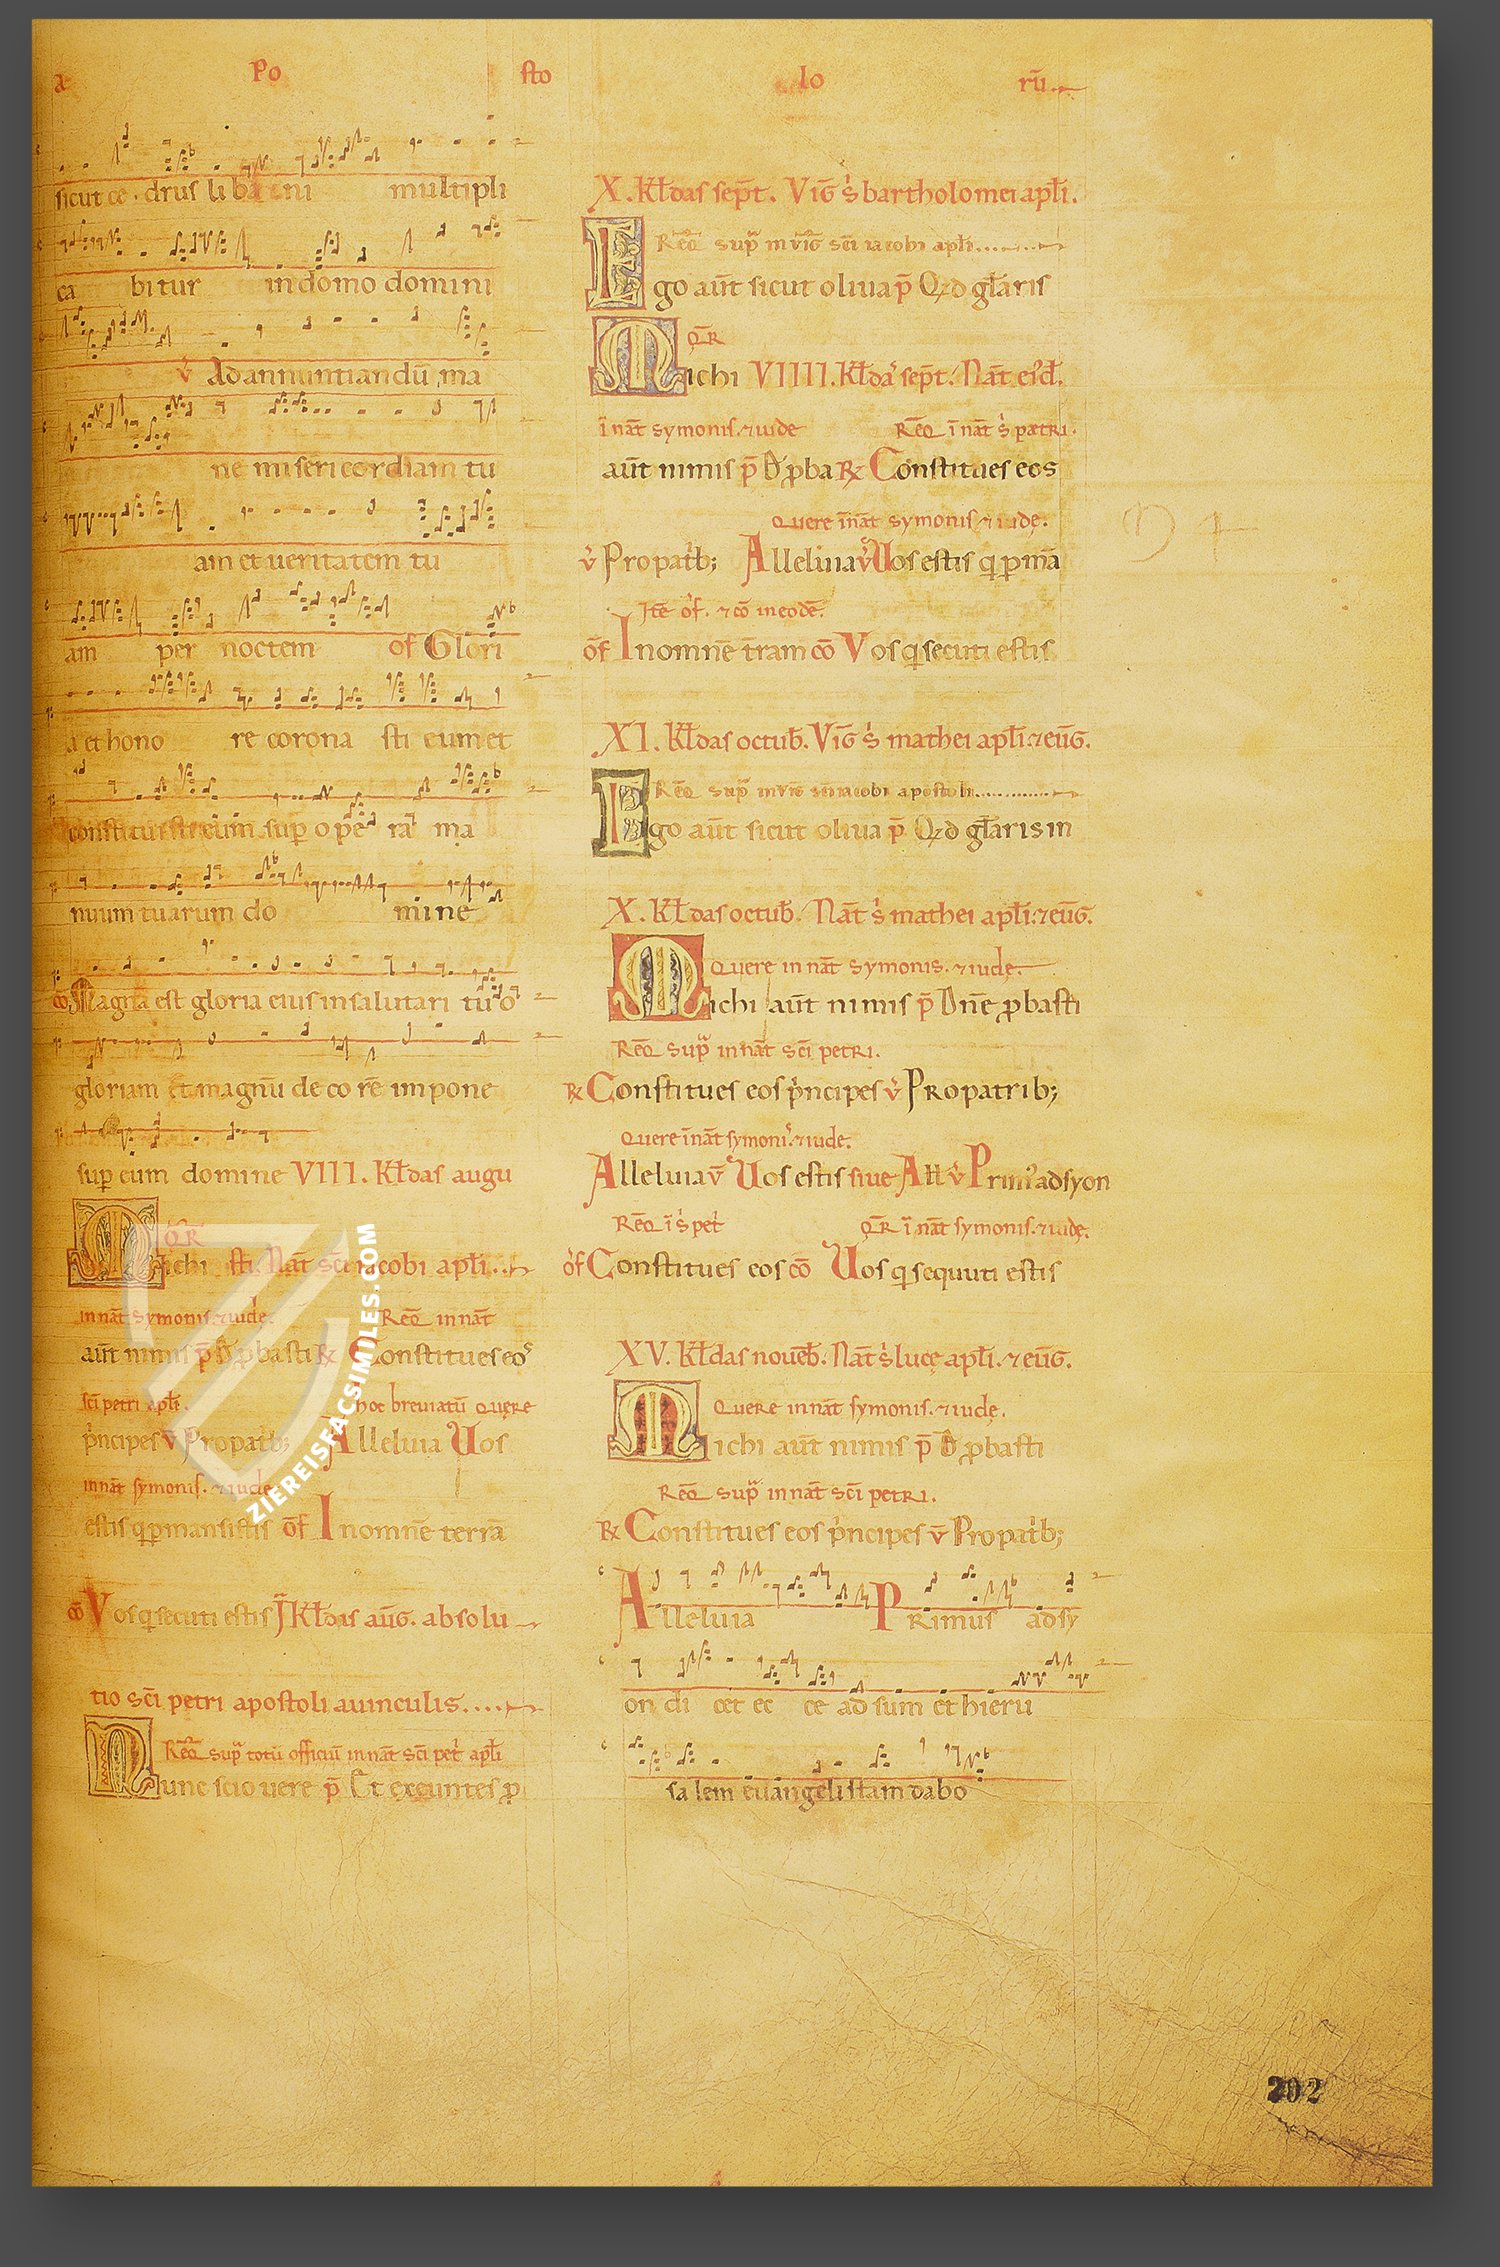 a Po sto lo rū.
sicut ce.drus libani multipli
ca bitur in domo domini
v̄ Ad annuntiandū ma
ne misericordiam tu
am et ueritatem tu
am per noctem of Glori
a et hono re corona sti eum et
constituisti eum sup ope ra ma
nuum tuarum do mine
cō Magna est gloria eius in salutari tuo
gloriam et magnū deco rē impone
sup eum domine VIII. Kl̄das augu
QR̄
Michi sti. Nat̄ sc̄i iacobi apl̄i.
in nat̄ symonis. ⁊ iude. Req̄ in nat̄
aut̄ nimis p̄ D̄ p̱basti ℞ Constitues eos
sc̄i petri apl̄i. hoc breuiatū Quere
p̄ncipes v̄ Propatb; Alleluia Uos
in nat̄ symonis. ⁊ iude.
estis q p̱mansistis of̄ In omnē terrā
cō Vos q secuti estis J Kl̄das aūg. absolu
tio sc̄i petri apostoli auinculis....
Req̄ supª totū officiū in nat̄ sc̄i pet apl̄i
Nunc scio uere p̄ Et exeuntes p̱
X. Kl̄das sept̄. Viḡ s̄ bartholomei apl̄i.
Req̄ supª in uiḡ sc̄i iacobi apl̄i......
Ego aut̄ sicut oliua p̄ Qd gl̄aris
QR̄
Michi VIIII. Kl̄da sept̄. Nat̄ eid̄.
ī nat̄ symonis. ⁊ iude Req̄ ī nat̄ s̄ patri.
aut̄ nimis p̄ D̄ p̱ba ℞ Constitues eos
Quere ī nat̄ symonis ⁊ iudę.
v̄ Propatb; Alleluia v̄ Uos estis q p̱mā
Itē of̄. ⁊ cō in eodē.
of̄ In omnē tr̄am cō Vos q secuti estis
XI. Kl̄das octub̄. Viḡ s̄ mathei apl̄i. ⁊ eūg.
Req̄ supª in viḡ sc̄i iacobi apostoli............
Ego aut̄ sicut oliua p̄ Qd gl̄aris in
X. Kl̄das octub̄. Nat̄ s̄ mathei apl̄i. ⁊ eūg.
Quere in nat̄ symonis. ⁊ iudę.
Michi aut̄ nimis p̄ Dn̄e p̱basti
Req̄ supª in nat̄ sc̄i petri.
℞ Constitues eos p̄ncipes v̄ Propatrib;
Quere ī nat̄ symonis. ⁊ iude.
Alleluia v̄ Uos estis siue All̄ v̄ Prim᾿ ad syon
Req̄ ī s̄ pet QR̄ ī nat̄ symonis. ⁊ iudę.
of̄ Constitues eos cō Uos q sequuti estis
XV. Kl̄das nouēb̄. Nat̄ s̄ lucę apl̄i. ⁊ eūg.
Quere in nat̄ symonis. ⁊ iudę.
Michi aut̄ nimis p̄ D̄ p̱basti
Req̄ supª in nat̄ sc̄i petri.
℞ Constitues eos p̄ncipes v̄ Propatb;
Alleluia Primus ad sy
on di cet ec ce adsum et hieru
salem euangelistam dabo
202
ZIEREISFACSIMILES.COM